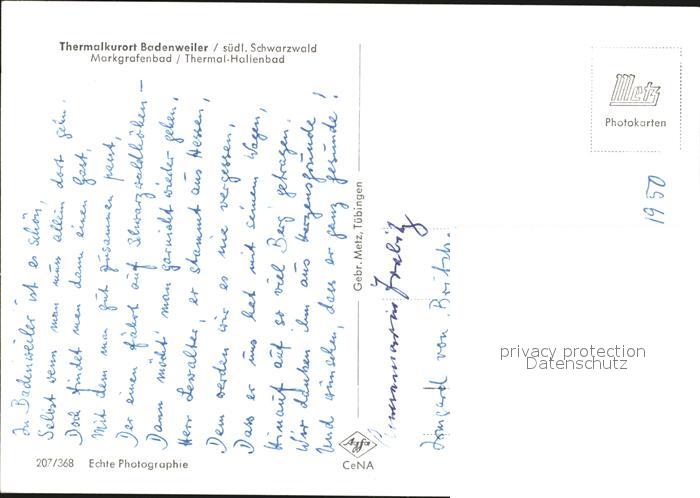 Thermalkurort Badenweiler / südl. Schwarzwald
Markgrafenbad / Thermal-Hallenbad
In Badenweiler ist es schön,
Selbst wenn man muss allein dort gehn.
Doch findet man dann einen Gast,
Mit dem man gut zusammen passt,
Der einen fährt auf Schwarzwaldhöhen –
Dann möcht' man garnicht wieder gehen,
Herr Lewalter, er stammt aus Hessen,
Dem werden wir es nie vergessen,
Dass er uns hat mit seinem Wagen,
Hinauf auf so viel Berg' getragen.
Wir danken ihm aus Herzensgrunde
Und wünschen, dass er ganz gesunde!
Gebr. Metz, Tübingen
Metz
Photokarten
1950
Irmgard von
privacy protection
Datenschutz
207/368 Echte Photographie
Agfa
CeNA